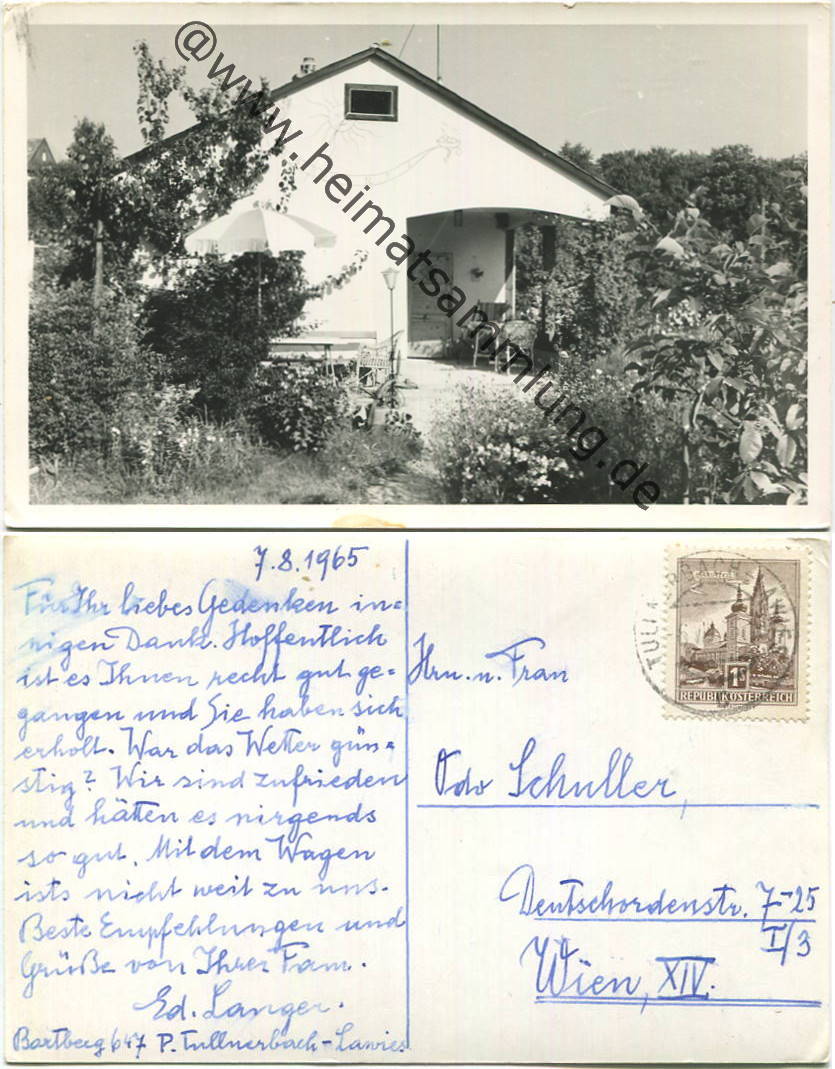 @www.heimatsammlung.de
7.8.1965
Für Ihr liebes Gedenken in=
nigen Dank. Hoffentlich
ist es Ihnen recht gut ge=
gangen und Sie haben sich
erholt. War das Wetter gün=
stig? Wir sind zufrieden
und hätten es nirgends
so gut. Mit dem Wagen
ists nicht weit zu uns.
Beste Empfehlungen und
Grüße von Ihrer Fam.
Ed. Langer.
Bartberg 647 P. Tullnerbach-Lawies
Hrn. u. Frau
Odo Schuller,
Deutschordenstr. 7-25
I/3
Wien, XIV.
1S
REPUBLIK ÖSTERREICH